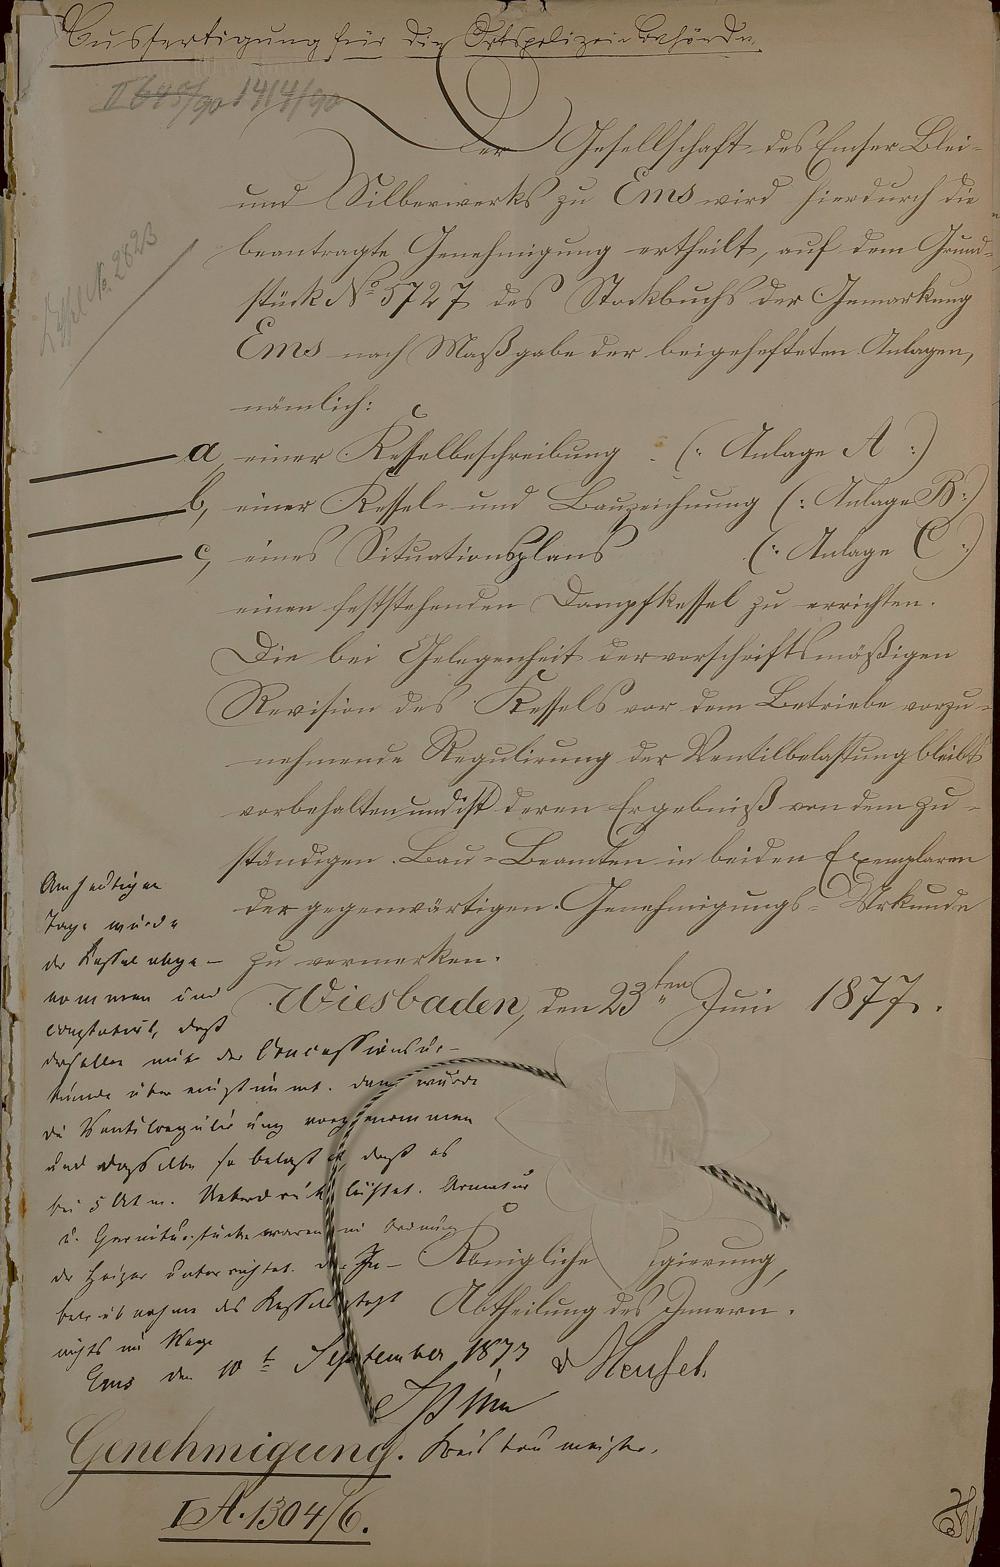 Ausfertigung für die Ortspolizei-Behörde.
II 645/90 1414/90
Der Gesellschaft des Emser Blei-
und Silberwerks zu Ems wird hierdurch die
beantragte Genehmigung ertheilt, auf dem Grund-
stück No 5727 des Stockbuchs der Gemarkung
Ems nach Maßgabe der beigehefteten Anlagen,
nämlich:
a, einer Kesselbeschreibung (: Anlage A :)
b, einer Kessel- und Bauzeichnung (: Anlage B :)
c, eines Situationsplans (: Anlage C :)
einen feststehenden Dampfkessel zu errichten.
Die bei Gelegenheit der vorschriftsmäßigen
Revision des Kessels vor dem Betriebe vorzu-
nehmende Regulirung der Ventilbelastung bleibt
vorbehalten und ist deren Ergebniß von dem zu-
ständigen Bau-Beamten in beiden Exemplaren
der gegenwärtigen Genehmigungs-Urkunde
zu vermerken.
Wiesbaden, den 23ten Juni 1877.
Königliche Regierung,
Abtheilung des Innern.
Am heutigen
Tage wurde
der Kessel abge-
nommen und
constatirt, daß
derselbe mit der Concessionsur-
kunde übereinstimmt. dann wurde
die Ventilregulirung vorgenommen
und dasselbe so belastet, daß es
bei 5 Atm. Ueberdruck lüftet. Armatur
u. Garniturstücke waren in Ordnung
der Heizer unterrichtet. der In-
betriebnahme des Kessels steht
nichts im Wege
Ems den 10t September 1877
Kreisbaumeister.
Genehmigung.
I A. 1304/6.